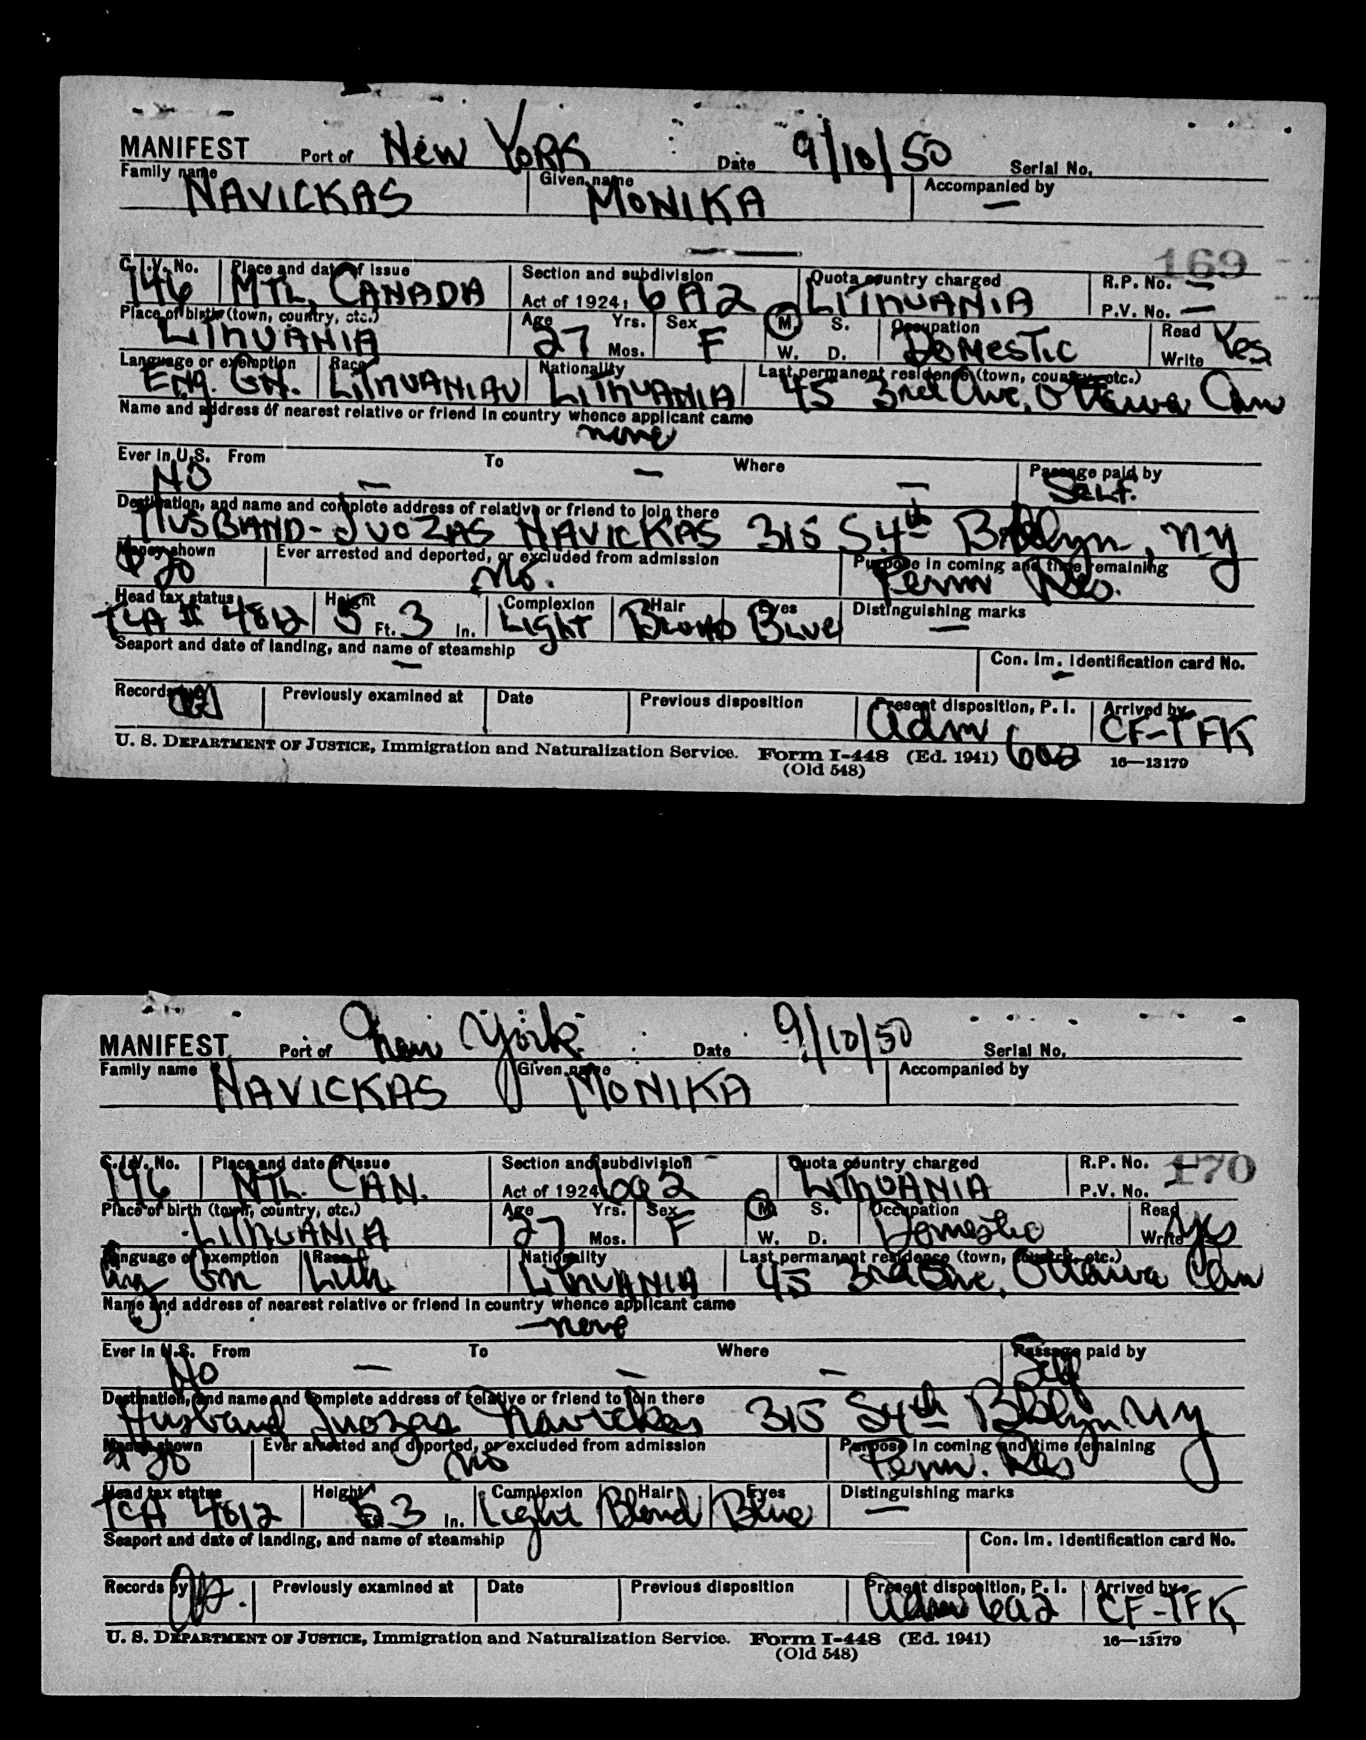 MANIFEST Port of New York Date 9/10/50 Serial No.
Family name NAVICKAS Given name MONIKA Accompanied by —
169
C.I.V. No. 146 Place and date of issue MTL, CANADA Section and subdivision Act of 1924, 6A2 Quota country charged LITHUANIA R.P. No. — P.V. No. —
Place of birth (town, country, etc.) LITHUANIA Age 27 Yrs. Mos. Sex F M. S. W. D. Occupation DOMESTIC Read Write Yes
Language or exemption Eng. GN. Race LITHUANIAN Nationality LITHUANIA Last permanent residence (town, country, etc.) 45 3rd Ave, Ottawa Can
Name and address of nearest relative or friend in country whence applicant came
none
Ever in U.S. NO From — To — Where — Passage paid by Self.
Destination, and name and complete address of relative or friend to join there
HUSBAND - JUOZAS NAVICKAS 315 S.4th Bklyn, NY
Money shown $20 Ever arrested and deported, or excluded from admission No. Purpose in coming and time remaining Perm Res.
Head tax status TCA II 4812 Height 5 Ft. 3 In. Complexion Light Hair BLOND Eyes BLUE Distinguishing marks —
Seaport and date of landing, and name of steamship — Con. Im. Identification card No. —
Records by Previously examined at Date Previous disposition Present disposition, P. I. adm 6a2 Arrived by CF-TFK
U. S. DEPARTMENT OF JUSTICE, Immigration and Naturalization Service. Form I-448 (Ed. 1941) 16—13179
(Old 548)
MANIFEST Port of New York Date 9/10/50 Serial No.
Family name NAVICKAS Given name MONIKA Accompanied by
C.I.V. No. 146 Place and date of issue MTL. CAN. Section and subdivision Act of 1924 6a2 Quota country charged LITHUANIA R.P. No. — P.V. No. — 170
Place of birth (town, country, etc.) LITHUANIA Age 27 Yrs. Mos. Sex F M. S. W. D. Occupation Domestic Read Write Yes
Language or exemption Eng Gn Race Lith Nationality LITHUANIA Last permanent residence (town, country, etc.) 45 3rd Ave, Ottawa Can
Name and address of nearest relative or friend in country whence applicant came
— none
Ever in U.S. No From — To — Where — Passage paid by Self
Destination, and name and complete address of relative or friend to join there
Husband Juozas Navickas 315 S4th Bklyn NY
Money shown $20 Ever arrested and deported, or excluded from admission No Purpose in coming and time remaining Perm. Res
Head tax status TCA 4812 Height 5 3 In. Complexion Light Hair Blond Eyes Blue Distinguishing marks —
Seaport and date of landing, and name of steamship Con. Im. Identification card No.
Records by Previously examined at Date Previous disposition Present disposition, P. I. adm 6a2 Arrived by CF-TFK
U. S. DEPARTMENT OF JUSTICE, Immigration and Naturalization Service. Form I-448 (Ed. 1941) 16—13179
(Old 548)